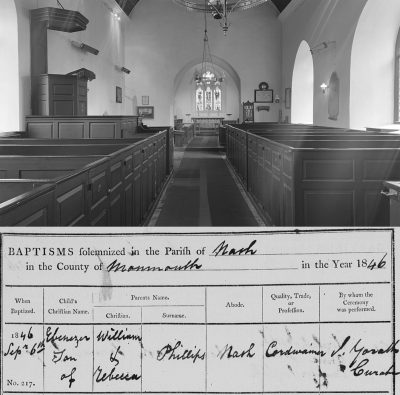 BAPTISMS solemnized in the Parish of Nash
in the County of Monmouth in the Year 1846
When Baptized. Child's Christian Name. Parents Name. Abode. Quality, Trade, or Profession. By whom the Ceremony was performed.
Christian. Surname.
1846 Ebenezer William
Sepr. 6th Son & Phillips Nash Cordwainer J. Yorath
No. 217. of Rebecca Curate